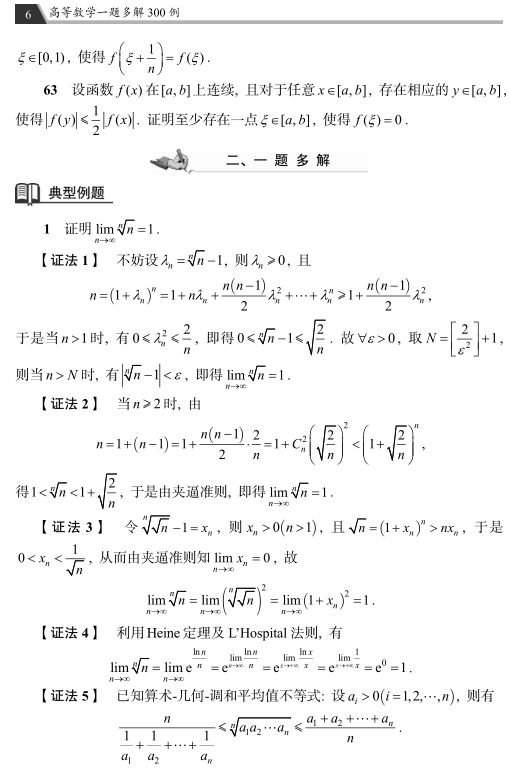 6 高等数学一题多解 300 例
ξ∈[0,1), 使得 f(ξ + 1/n) = f(ξ).
63 设函数 f(x) 在[a,b]上连续, 且对于任意 x∈[a,b], 存在相应的 y∈[a,b],
使得|f(y)| ⩽ 1/2 |f(x)|. 证明至少存在一点 ξ∈[a,b], 使得 f(ξ) = 0.
二、一 题 多 解
典型例题
1 证明 lim_{n→∞} ⁿ√n = 1.
【证法 1】 不妨设 λₙ = ⁿ√n − 1, 则 λₙ ⩾ 0, 且
n = (1+λₙ)ⁿ = 1 + nλₙ + n(n−1)/2 λₙ² + ⋯ + λₙⁿ ⩾ 1 + n(n−1)/2 λₙ²,
于是当 n>1 时, 有 0 ⩽ λₙ² ⩽ 2/n, 即得 0 ⩽ ⁿ√n − 1 ⩽ √(2/n). 故 ∀ε>0, 取 N = [2/ε²] + 1,
则当 n > N 时, 有 |ⁿ√n − 1| < ε, 即得 lim_{n→∞} ⁿ√n = 1.
【证法 2】 当 n ⩾ 2 时, 由
n = 1 + (n−1) = 1 + n(n−1)/2 · 2/n = 1 + Cₙ² (√(2/n))² < (1 + √(2/n))ⁿ,
得 1 < ⁿ√n < 1 + √(2/n), 于是由夹逼准则, 即得 lim_{n→∞} ⁿ√n = 1.
【证法 3】 令 ⁿ√(√n) − 1 = xₙ, 则 xₙ > 0 (n>1), 且 √n = (1+xₙ)ⁿ > nxₙ, 于是
0 < xₙ < 1/√n, 从而由夹逼准则知 lim_{n→∞} xₙ = 0, 故
lim_{n→∞} ⁿ√n = lim_{n→∞} (ⁿ√(√n))² = lim_{n→∞} (1+xₙ)² = 1.
【证法 4】 利用 Heine 定理及 L'Hospital 法则, 有
lim_{n→∞} ⁿ√n = lim_{n→∞} e^{ln n / n} = e^{lim_{n→∞} ln n / n} = e^{lim_{x→+∞} ln x / x} = e^{lim_{x→+∞} 1/x} = e⁰ = 1.
【证法 5】 已知算术-几何-调和平均值不等式: 设 aᵢ > 0 (i = 1,2,⋯,n), 则有
n / (1/a₁ + 1/a₂ + ⋯ + 1/aₙ) ⩽ ⁿ√(a₁a₂⋯aₙ) ⩽ (a₁ + a₂ + ⋯ + aₙ)/n.